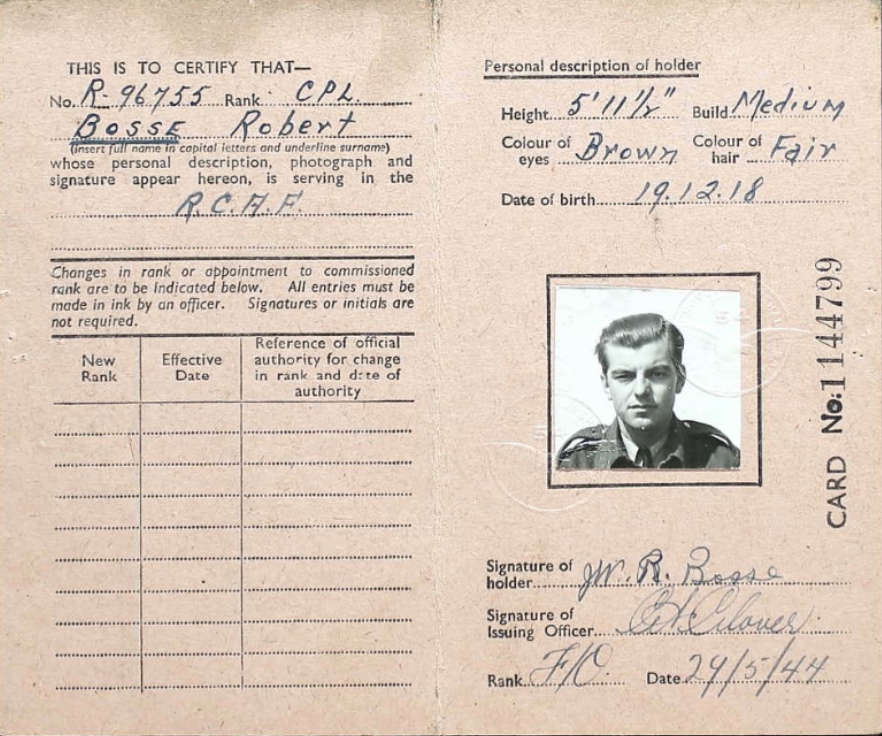 THIS IS TO CERTIFY THAT—
No. R-96755 Rank CPL.
BOSSE Robert
(insert full name in capital letters and underline surname)
whose personal description, photograph and
signature appear hereon, is serving in the
R.C.A.F.
Changes in rank or appointment to commissioned
rank are to be indicated below. All entries must be
made in ink by an officer. Signatures or initials are
not required.
New Rank
Effective Date
Reference of official
authority for change
in rank and date of
authority
Personal description of holder
Height 5' 11½" Build Medium
Colour of eyes Brown Colour of hair Fair
Date of birth 19.12.18
CARD No: 1144799
Signature of holder J.W. R. Bosse
Signature of Issuing Officer
Rank F/O. Date 29/5/44